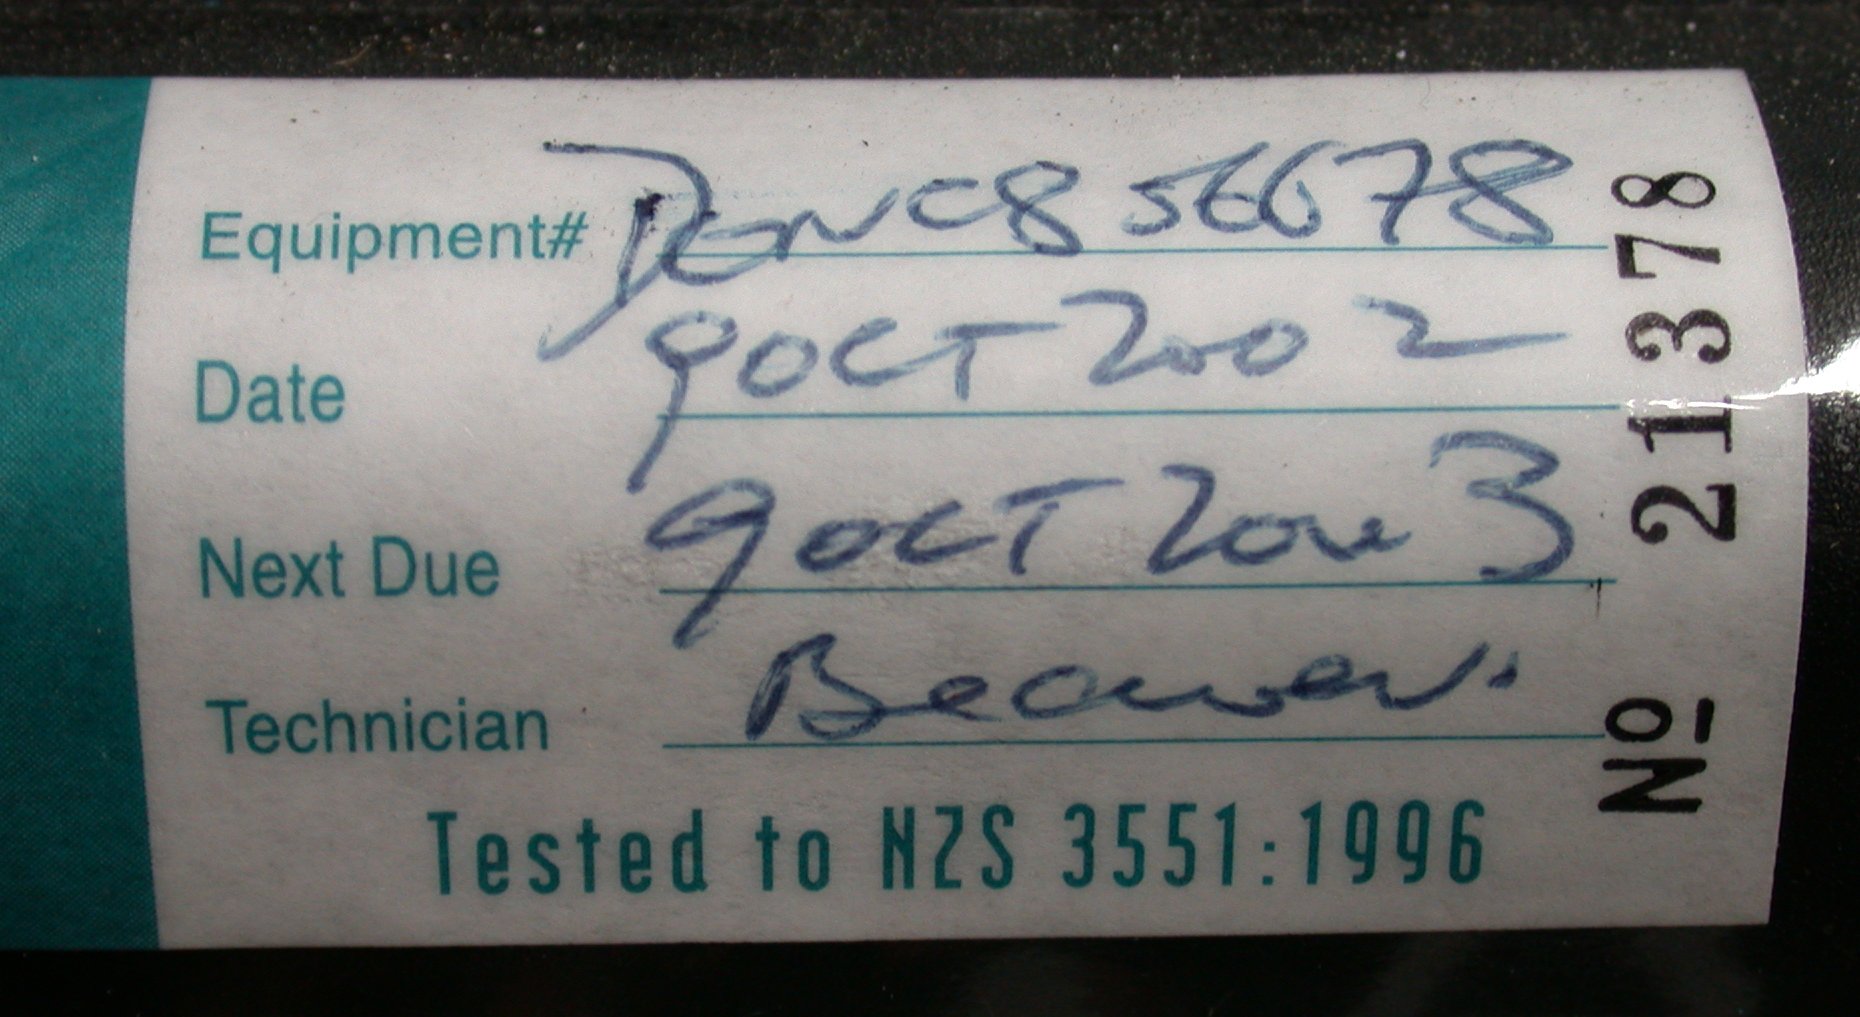 Equipment#
Date 9 OCT 2002
Next Due 9 OCT 2003
Technician
Tested to NZS 3551:1996
Nº 21378